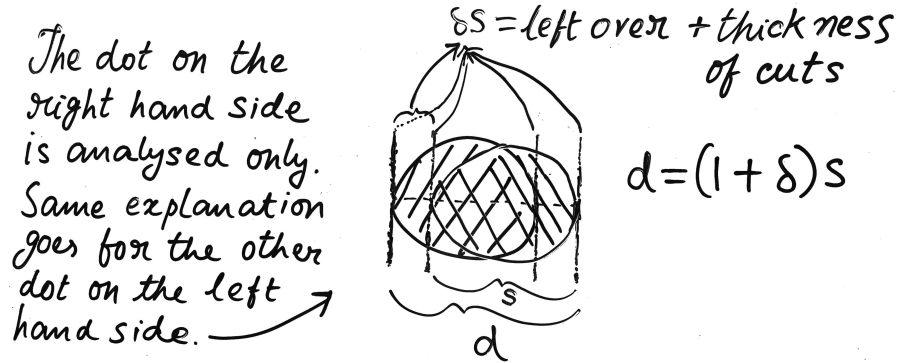 The dot on the
right hand side
is analysed only.
Same explanation
goes for the other
dot on the left
hand side.
δS = left over + thickness
of cuts
d = (1 + δ) s
s
d